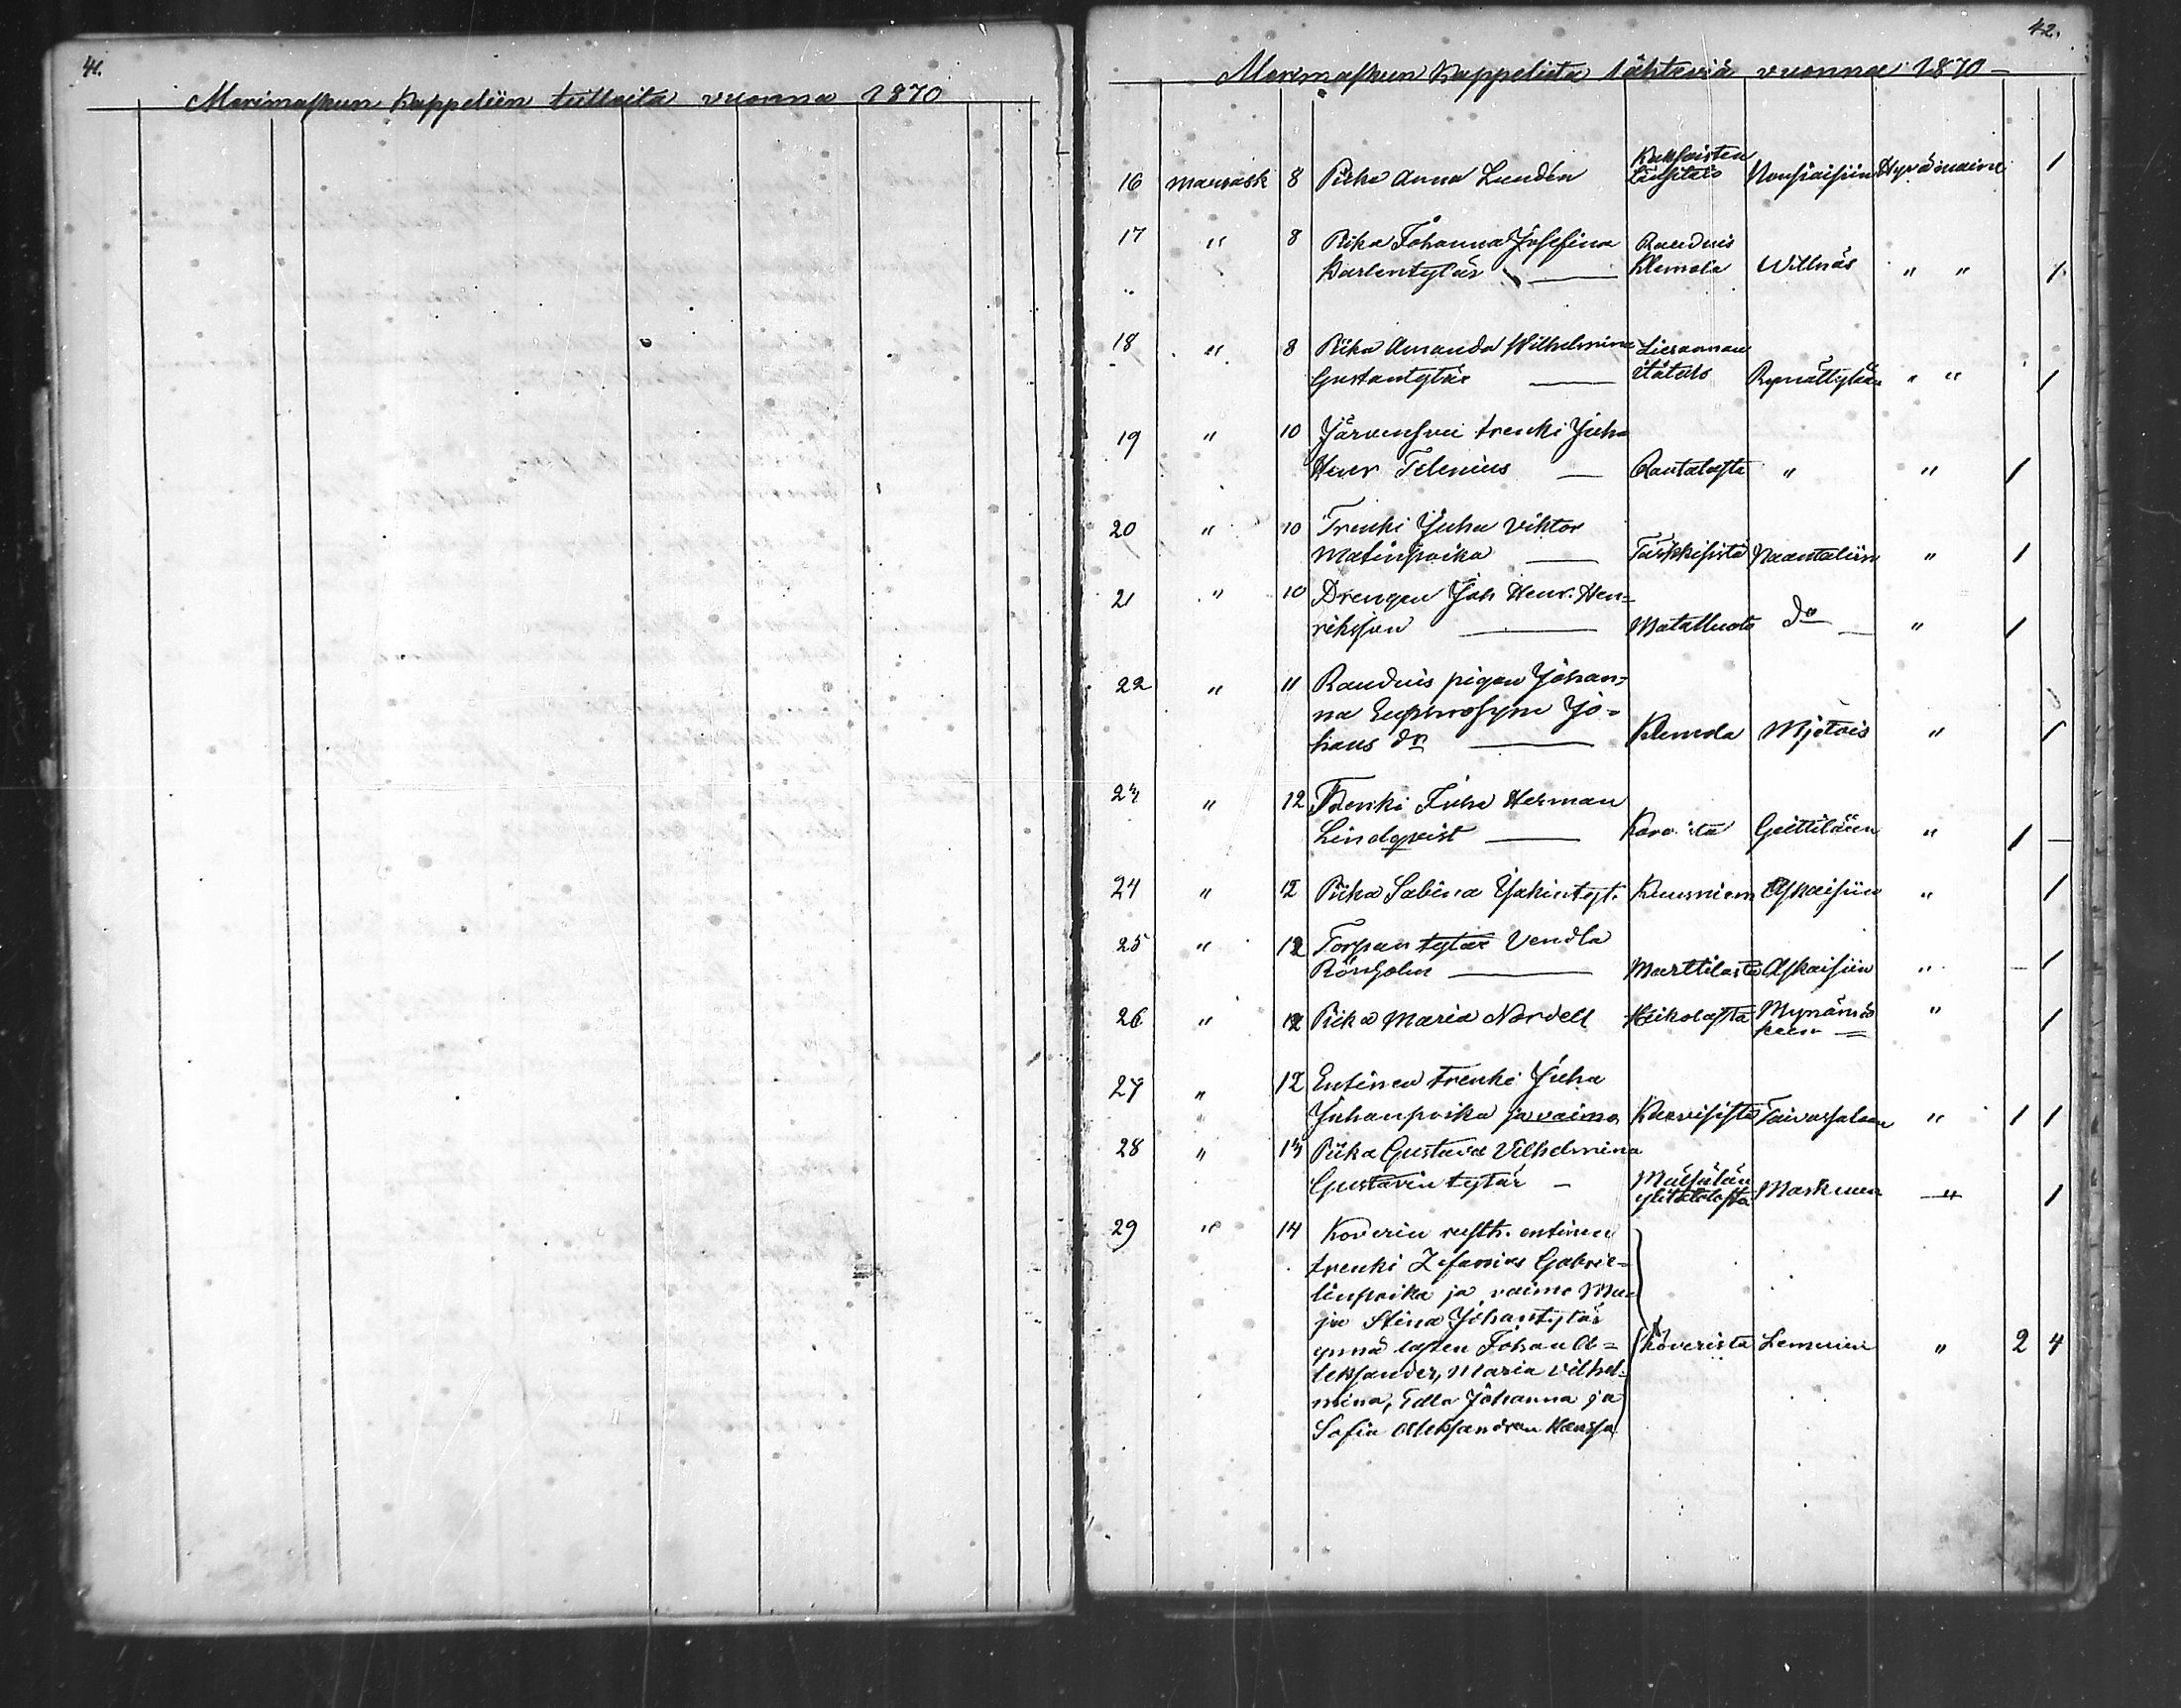 41.
Merimaskun Kappeliin tulleita vuonna 1870
42.
Merimaskun Kappelista lähteviä vuonna 1870 —
16 Marrask 8 Piika Anna Lundén Nousiaisiin Hyvämaine 1
17 " 8 Piika Johanna Josefina Raudnis
Karlentytär — Klemola Willnäs " " 1
18 " 8 Piika Amanda Wilhelmina
Gustantytär — Rymättylään " " 1
19 " 10 Järvensuu trenki Juha
Henr Telenius — Rautalasta " " 1
20 " 10 Trenki Juha Viktor
Matinpoika — Naantaliin " 1
21 " 10 Drengen Joh Henr. Hen=
riksson — Matalluoto do — " 1
22 " 11 Raudnis pigan Johan=
na Euphrosyne Jo=
hans dr — Klemola Mjetois " 1
23 " 12 Trenki Juha Herman
Lindqvist — " 1 —
24 " 12 Piika Sabina Isakintyt. Kuusniemi Askaisiin " 1
25 " 12 Torpan tytär Vendla
Rönholm — Marttilasta Askaisiin " — 1
26 " 12 Piika Maria Nordell Heikolasta Mynämäs
keen = " 1
27 " 12 Entinen trenki Juha
Juhanpoika ja vaimo Taivassaloon " 1 1
28 " 13 Piika Gustava Vilhelmina
Gustavin tytär — ylitalosta Maskuun " 1
29 " 14 Koverin rusth. entinen
trenki Zefanias Gabrie=
linpoika ja vaimo Ma
ja Stina Johantytär
ynnä lasten Johan A=
leksander, Maria Vilhel= Koverista Lemuun " 2 4
mina, Edla Johanna ja
Sofia Aleksandran kanssa